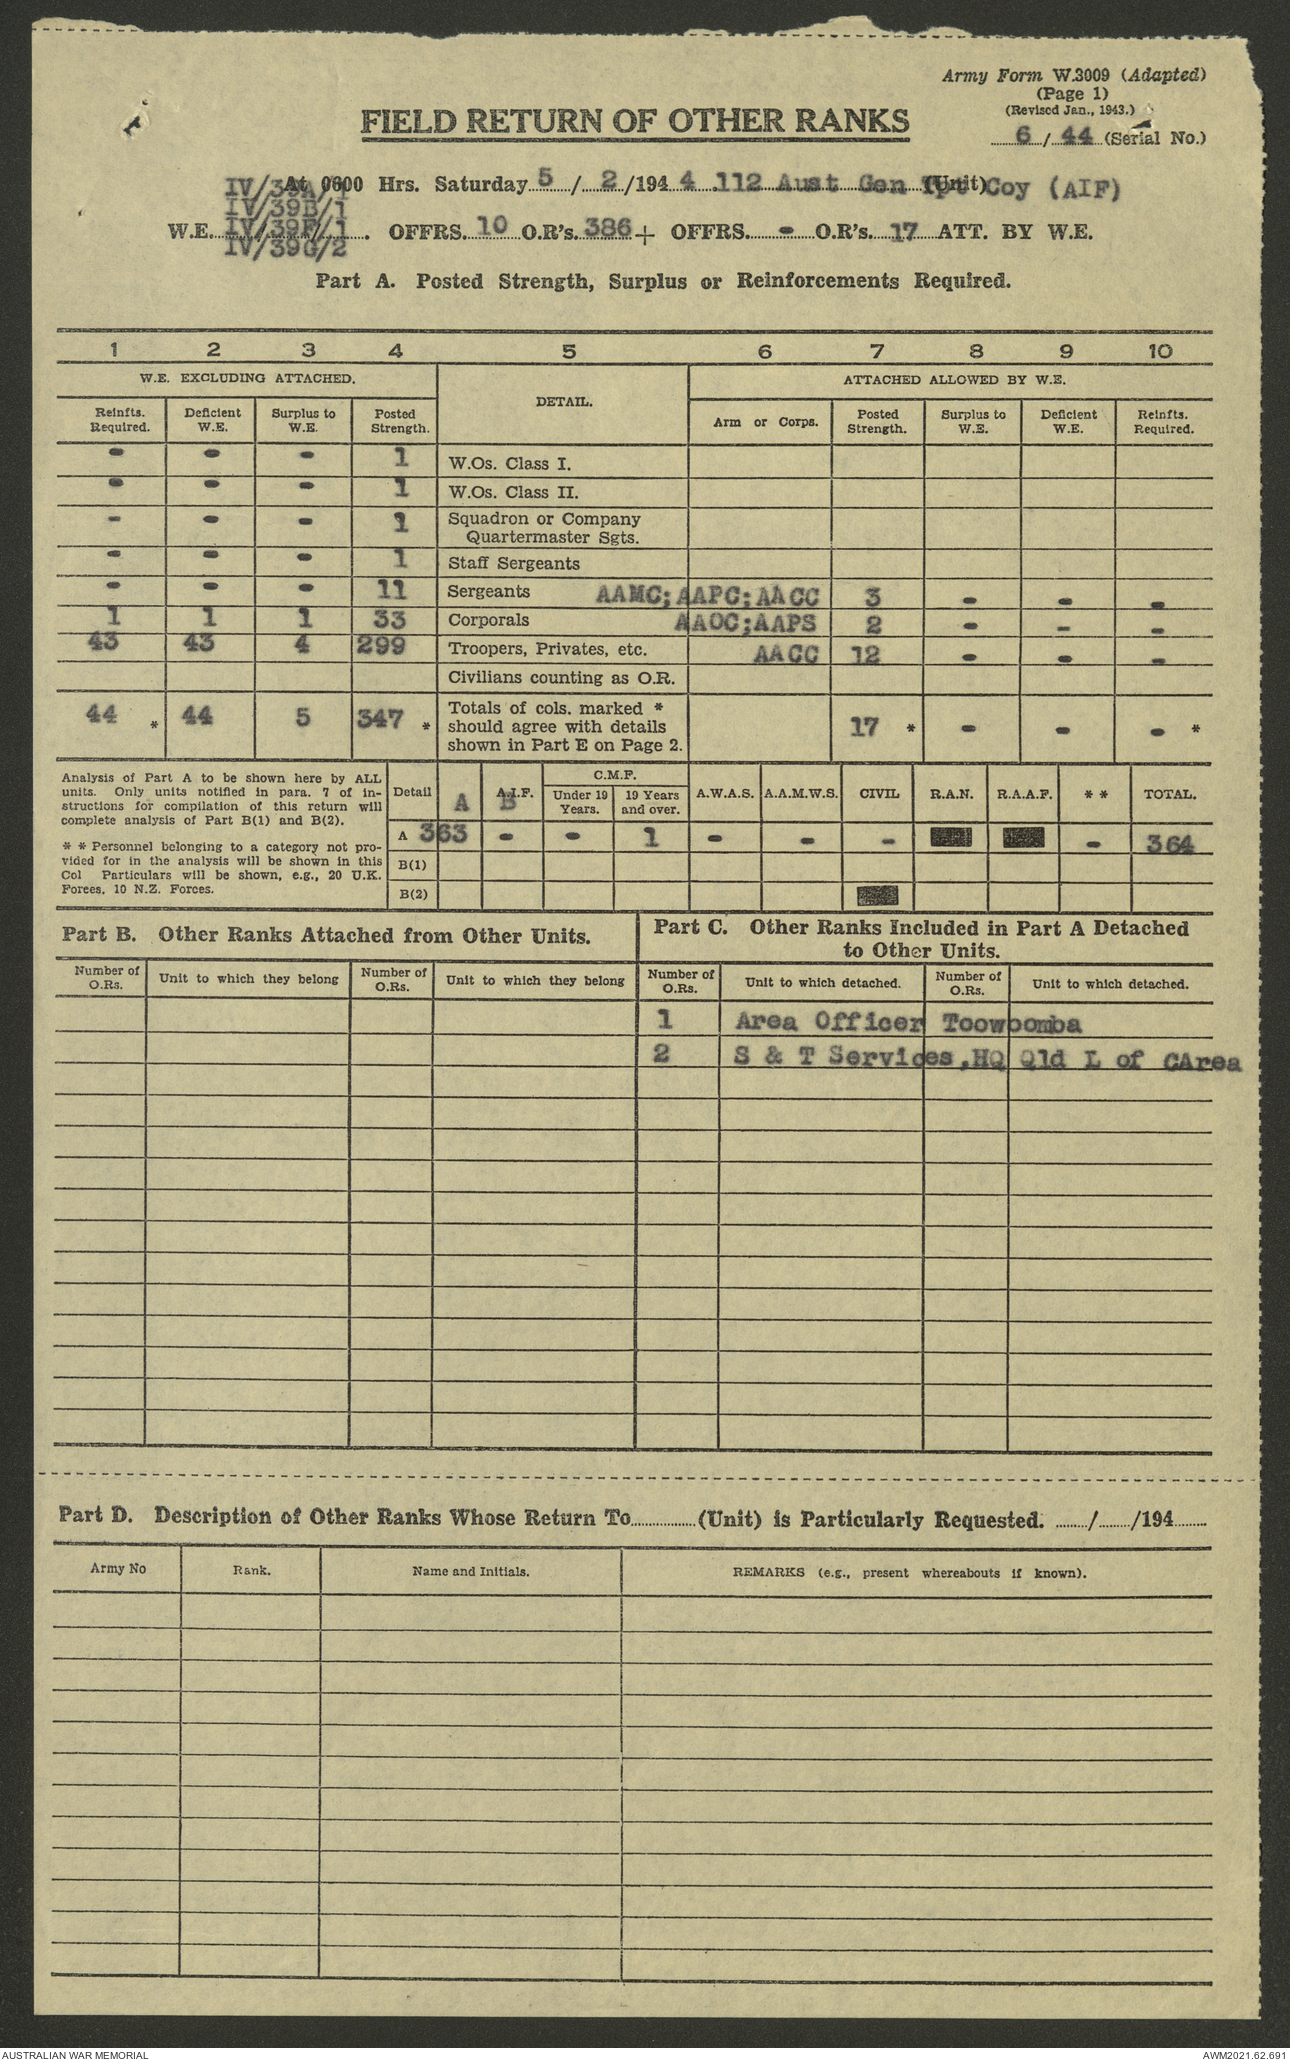 Army Form W.3009 (Adapted)
(Page 1)
(Revised Jan., 1943.)
FIELD RETURN OF OTHER RANKS
6 / 44 (Serial No.)
At 0600 Hrs. Saturday 5 / 2 /194 4 112 Aust Gen Tpt Coy (AIF) (Unit)
IV/39A/1
IV/39B/1
W.E. IV/39F/1 . OFFRS. 10 O.R's. 386 + OFFRS. - O.R's. 17 ATT. BY W.E.
IV/39G/2
Part A. Posted Strength, Surplus or Reinforcements Required.
1 2 3 4 5 6 7 8 9 10
W.E. EXCLUDING ATTACHED. DETAIL. ATTACHED ALLOWED BY W.E.
Reinfts. Required. Deficient W.E. Surplus to W.E. Posted Strength. Arm or Corps. Posted Strength. Surplus to W.E. Deficient W.E. Reinfts. Required.
- - - 1 W.Os. Class I.
- - - 1 W.Os. Class II.
- - - 1 Squadron or Company
Quartermaster Sgts.
- - - 1 Staff Sergeants
- - - 11 Sergeants AAMC;AAPC;AACC 3 - - -
1 1 1 33 Corporals AAOC;AAPS 2 - - -
43 43 4 299 Troopers, Privates, etc. AACC 12 - - -
Civilians counting as O.R.
44 * 44 5 347 * Totals of cols. marked * should agree with details shown in Part E on Page 2. 17 * - - - *
Analysis of Part A to be shown here by ALL
units. Only units notified in para. 7 of in-
structions for compilation of this return will
complete analysis of Part B(1) and B(2).
* * Personnel belonging to a category not pro-
vided for in the analysis will be shown in this
Col Particulars will be shown, e.g., 20 U.K.
Forces, 10 N.Z. Forces.
Detail A A.I.F. B C.M.F. Under 19 Years. 19 Years and over. A.W.A.S. A.A.M.W.S. CIVIL R.A.N. R.A.A.F. * * TOTAL.
A 363 - - 1 - - - - 364
B(1)
B(2)
Part B. Other Ranks Attached from Other Units.
Part C. Other Ranks Included in Part A Detached
to Other Units.
Number of O.Rs. Unit to which they belong Number of O.Rs. Unit to which they belong Number of O.Rs. Unit to which detached. Number of O.Rs. Unit to which detached.
1 Area Officer Toowoomba
2 S & T Services,HQ Qld L of CArea
Part D. Description of Other Ranks Whose Return To (Unit) is Particularly Requested. / /194
Army No Rank. Name and Initials. REMARKS (e.g., present whereabouts if known).
AUSTRALIAN WAR MEMORIAL AWM2021.62.691